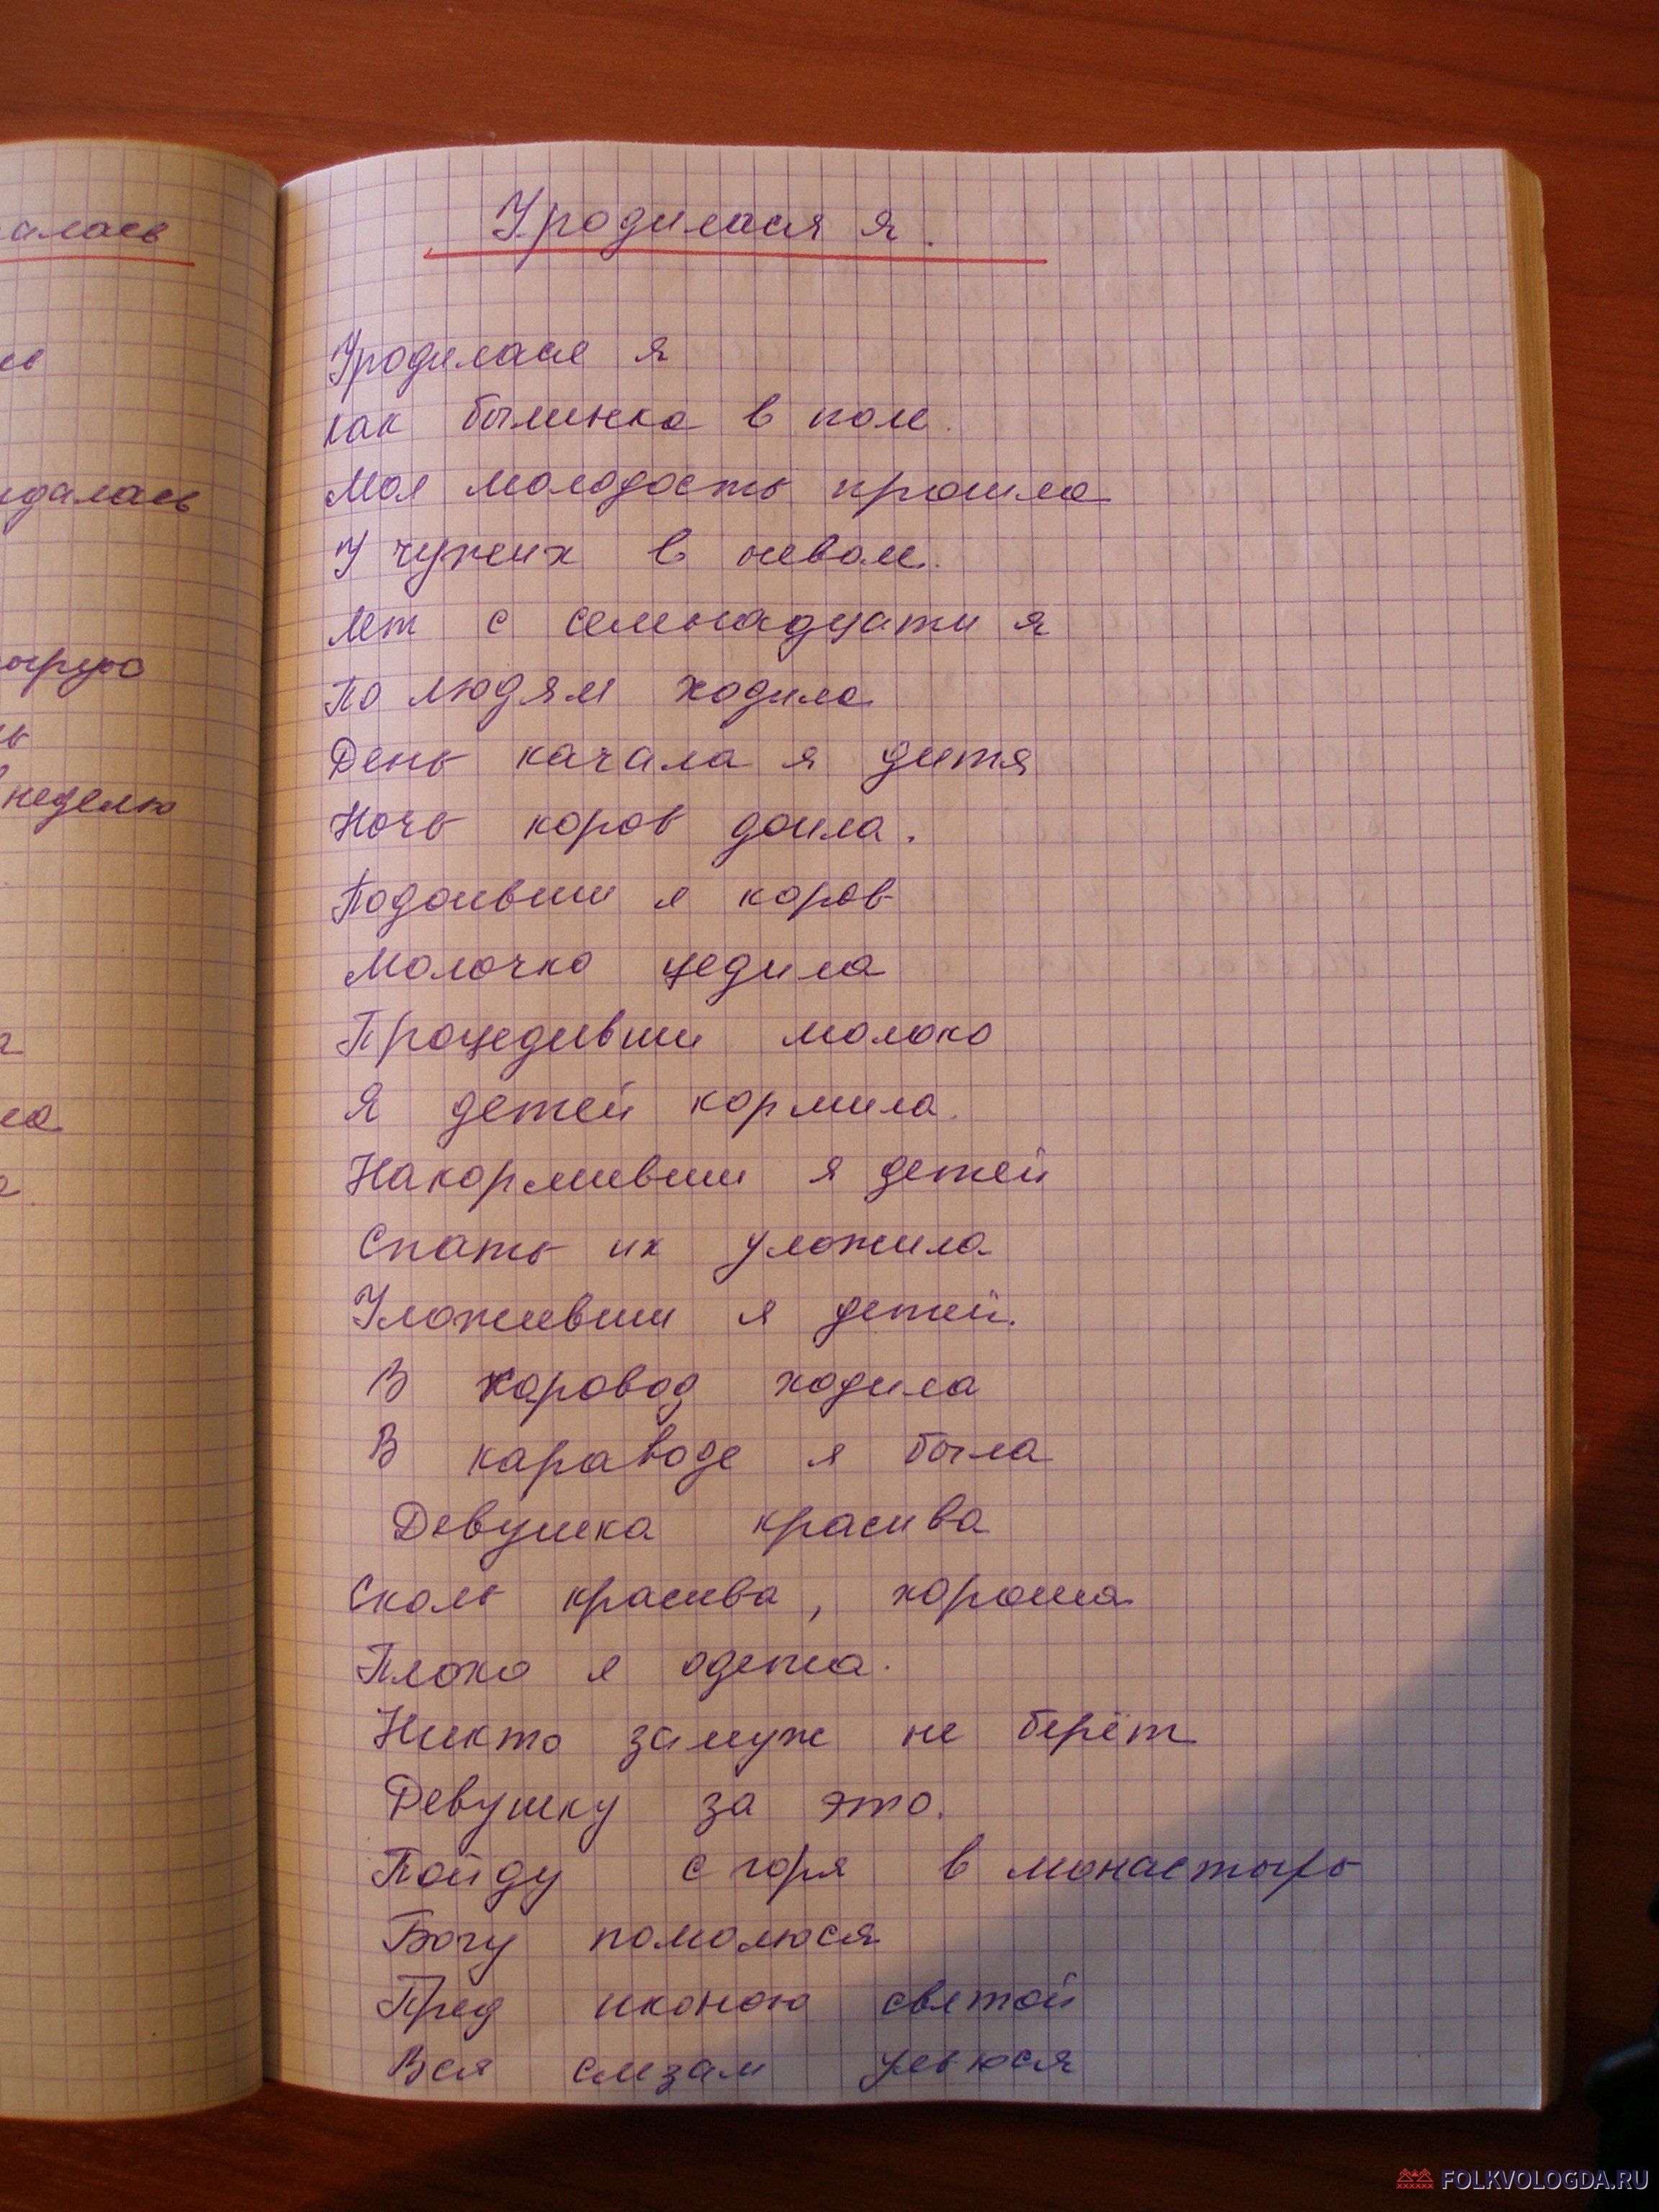 алась
идалась
неделю
Уродилася я.
Уродилася я
как былинка в поле.
Моя молодость прошла
У чужих в неволе.
Лет с семнадцати я
По людям ходила
День качала я дитя
Ночь коров доила.
Подоивши я коров
Молочко цедила
Процедивши молоко
Я детей кормила.
Накормивши я детей
Спать их уложила
Уложивши я детей.
В хоровод ходила
В караводе я была
Девушка красива
Сколь красива, хороша
Плохо я одета.
Никто замуж не берёт
Девушку за это.
Пойду с горя в монастырь
Богу помолюся
Пред иконою святой
Вся слезам ульюся
FOLKVOLOGDA.RU